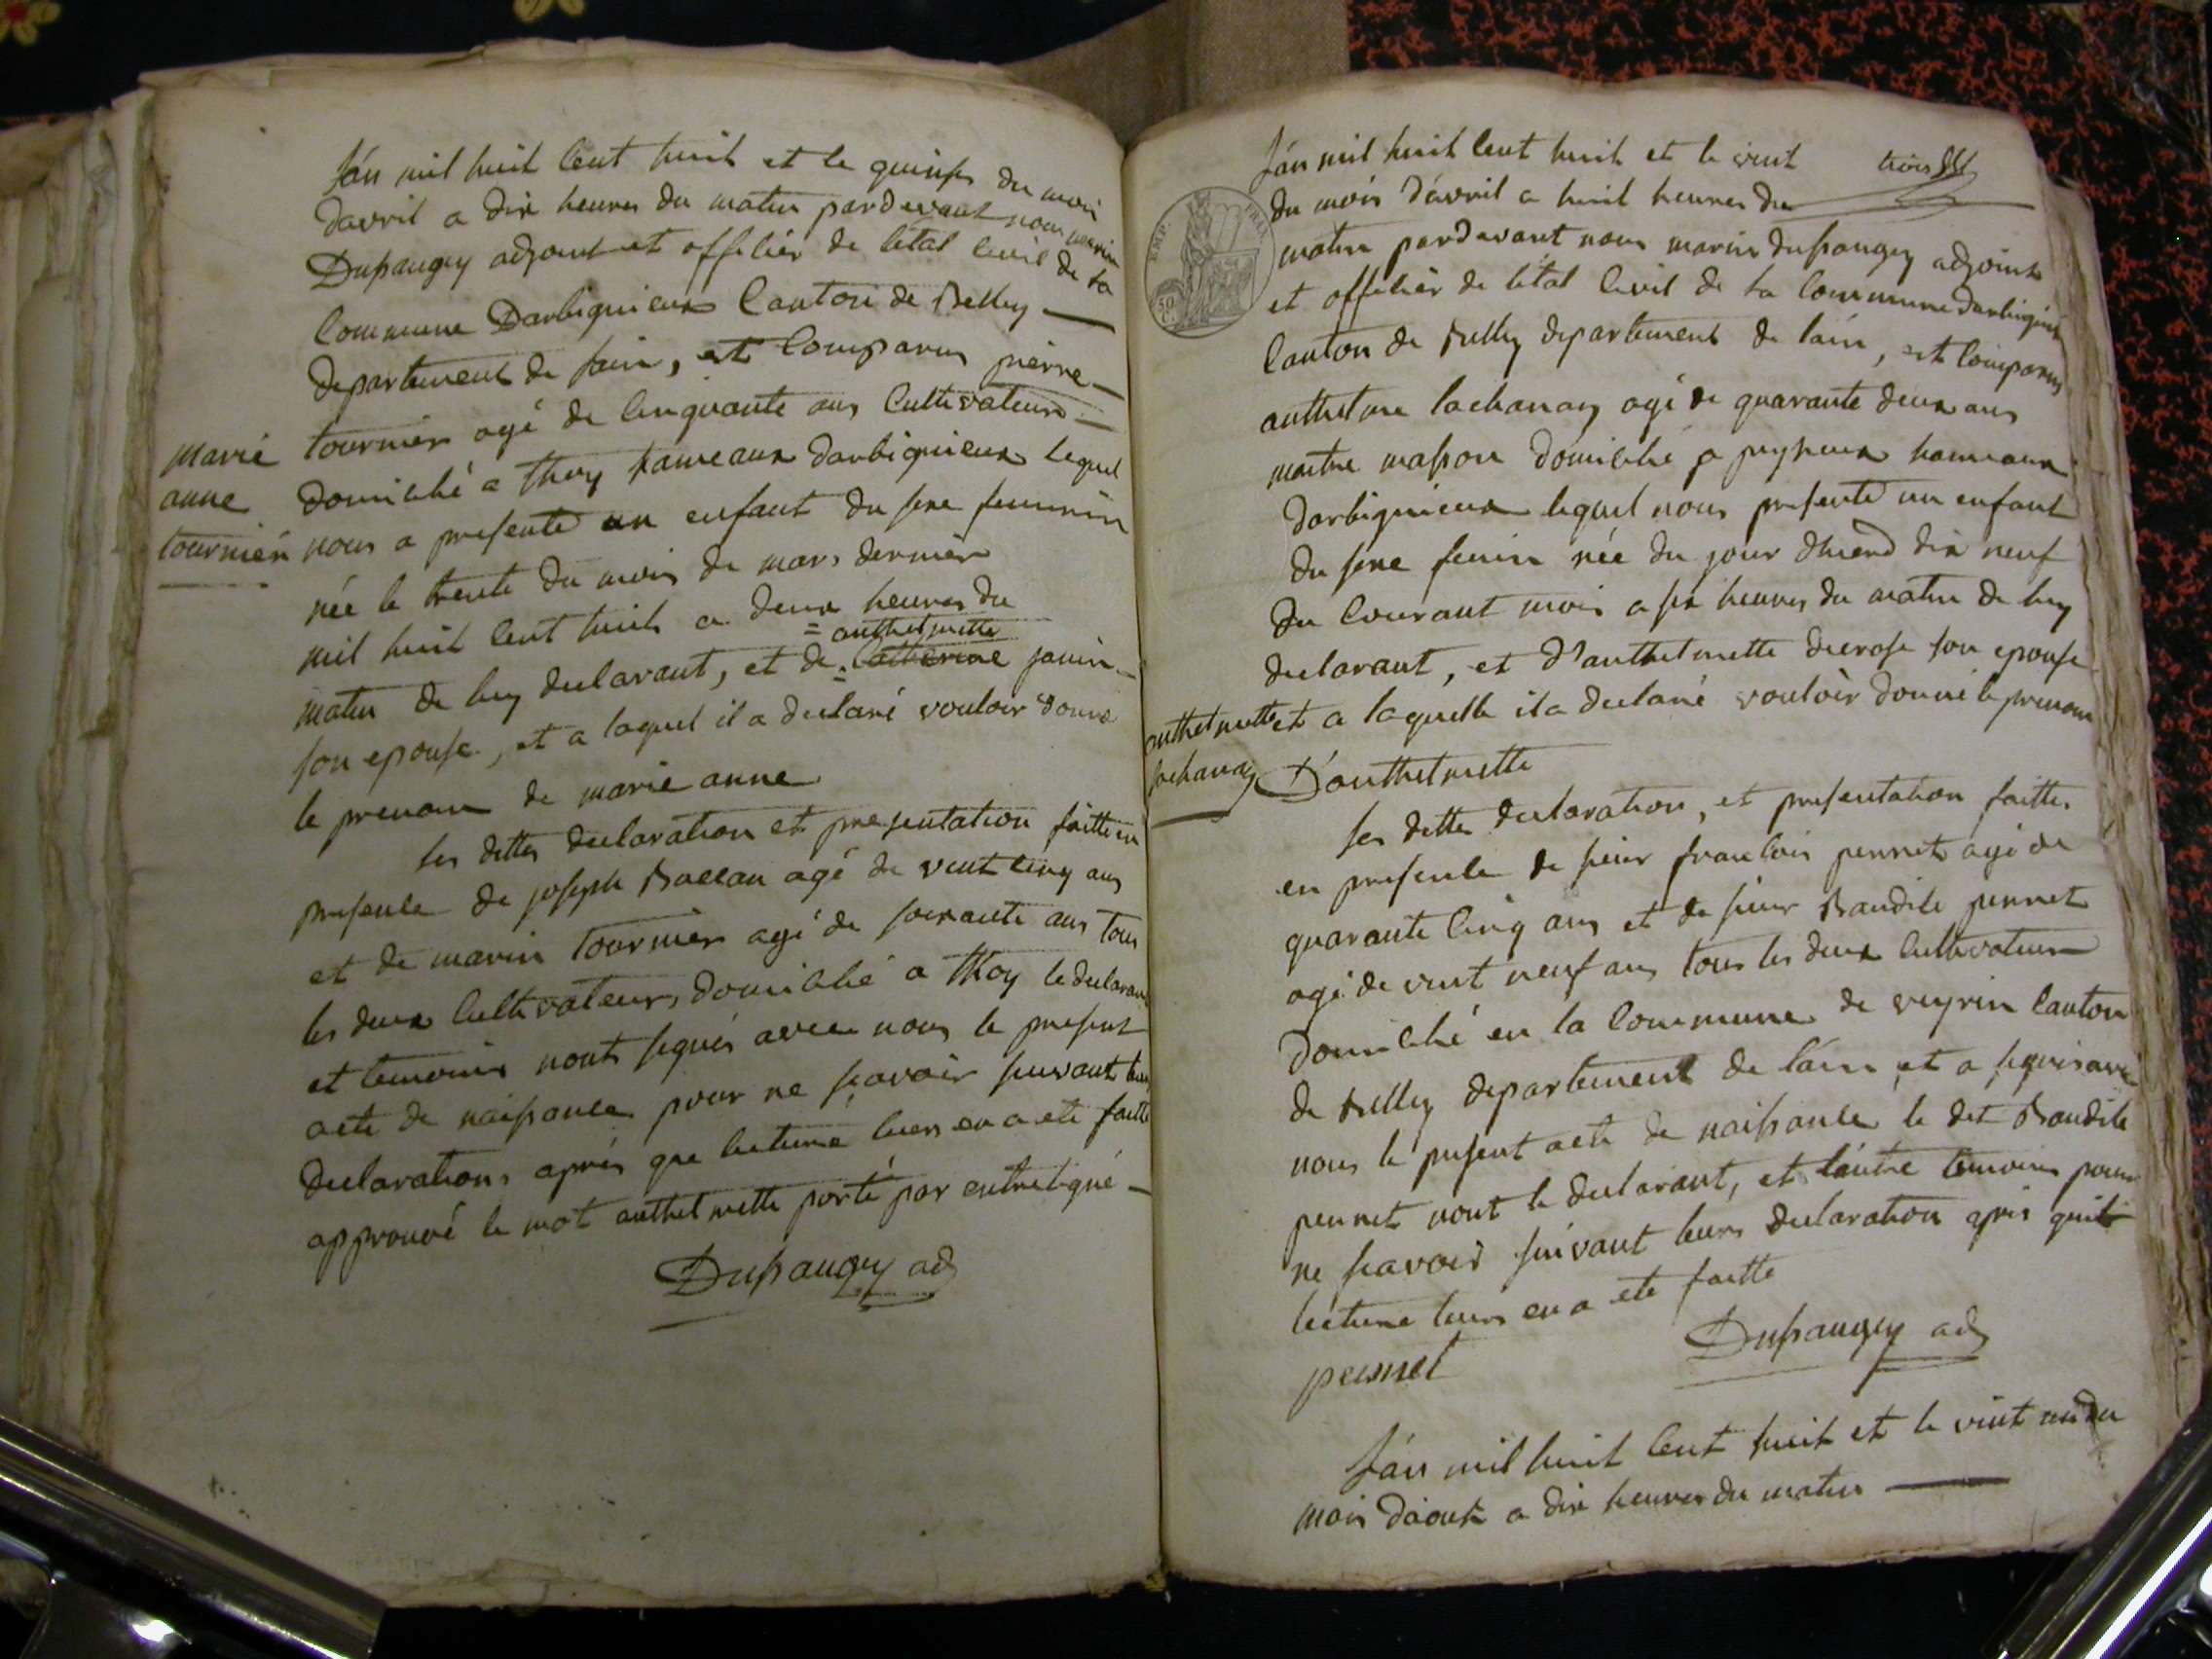 l'án mil huit Cent huit et le quinse du mois
davril a dix heures du matin pardevant nous marin
Dupaugey adjoint et offilier de létat Civil de la
Commune Darbignieux Canton de Belley
departement de lain, est Comparus pierre
tournier agé de Cinquante ans Cultivateur
domicilié a thoy hameaux darbignieux lequel
nous a presenté un enfant du sexe feminin
née le trente du mois de mars dernier
mil huit Cent huit a deux heures du
= anthelmette
matin de luy declarant, et de Catherine janin
son epouse, et a laquel il a declaré vouloir donné
le prenom de marie anne
marie
anne
tournier
les dittes declaration et presentation faitte en
presence de joseph Ballau agé de vent cinq ans
et de marin tournier agé de soixante ans tous
les deux Cultivateurs, domicilié a thoy le declarant
et temoins nont signés avec nous le present
acte de naissance pour ne scavoir suivant leurs
declarations aprés que lecture leurs en a eté faitte
approuvé le mot anthelmette porté par entreligné
Dupaugey adj
l'án mil huit Cent huit et le vint
trois
du mois d'avril a huit heures du
EMP. FRAN.
50 C.
matin pardevant nous marin dupaugey adjoint
et offilier de létat Civil de la Commune darbignieux
Canton de Belley departement de lain, est Comparus
anthelme lachanay agé de quarante deux ans
maitre masson domicilié a peyzieux hameaux
darbignieux lequel nous presenté un enfant
du sexe femin née du jour dhierd dix neuf
du Courant mois a six heures du matin de luy
declarant, et d'anthelmette decrose son epouse
et a laquelle il a declaré vouloir donné le prenom
D'anthelmette
anthelmette
lachanay
les dittes declaration, et presentation faittes
en presence de sieur francois pernet agé de
quarante cinq ans et de sieur Baudile pernet
agé de vint neuf ans tous les deux Cultivateurs
domicilié en la Commune de veyrin Canton
de Belley departement de láin, et a signés avec
nous le present acte de naissance le dit Baudile
pernet nont le declarant, et láutre temoins pour
ne scavoir suivant leurs declaration apris quil
lecture leurs en a eté faitte
pernet
Dupaugey adj
l'án mil huit Cent huit et le vint un du
mois d'aout a dix heures du matin